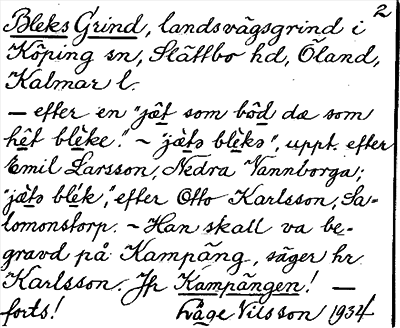 2
Bleks Grind, landsvägsgrind i
Köping sn, Slättbo hd, Öland,
Kalmar l.
— efter en "jät som bôd dæ som
hêt blèke." ~ "jäts blèks", uppt. efter
Emil Larsson, Nedra Vannborga;
"jäts blék", efter Otto Karlsson, Sa-
lomonstorp. — Han skall va be-
gravd på Kampäng, säger hr
Karlsson. Jfr Kampängen! —
forts! Häge Nilsson 1934